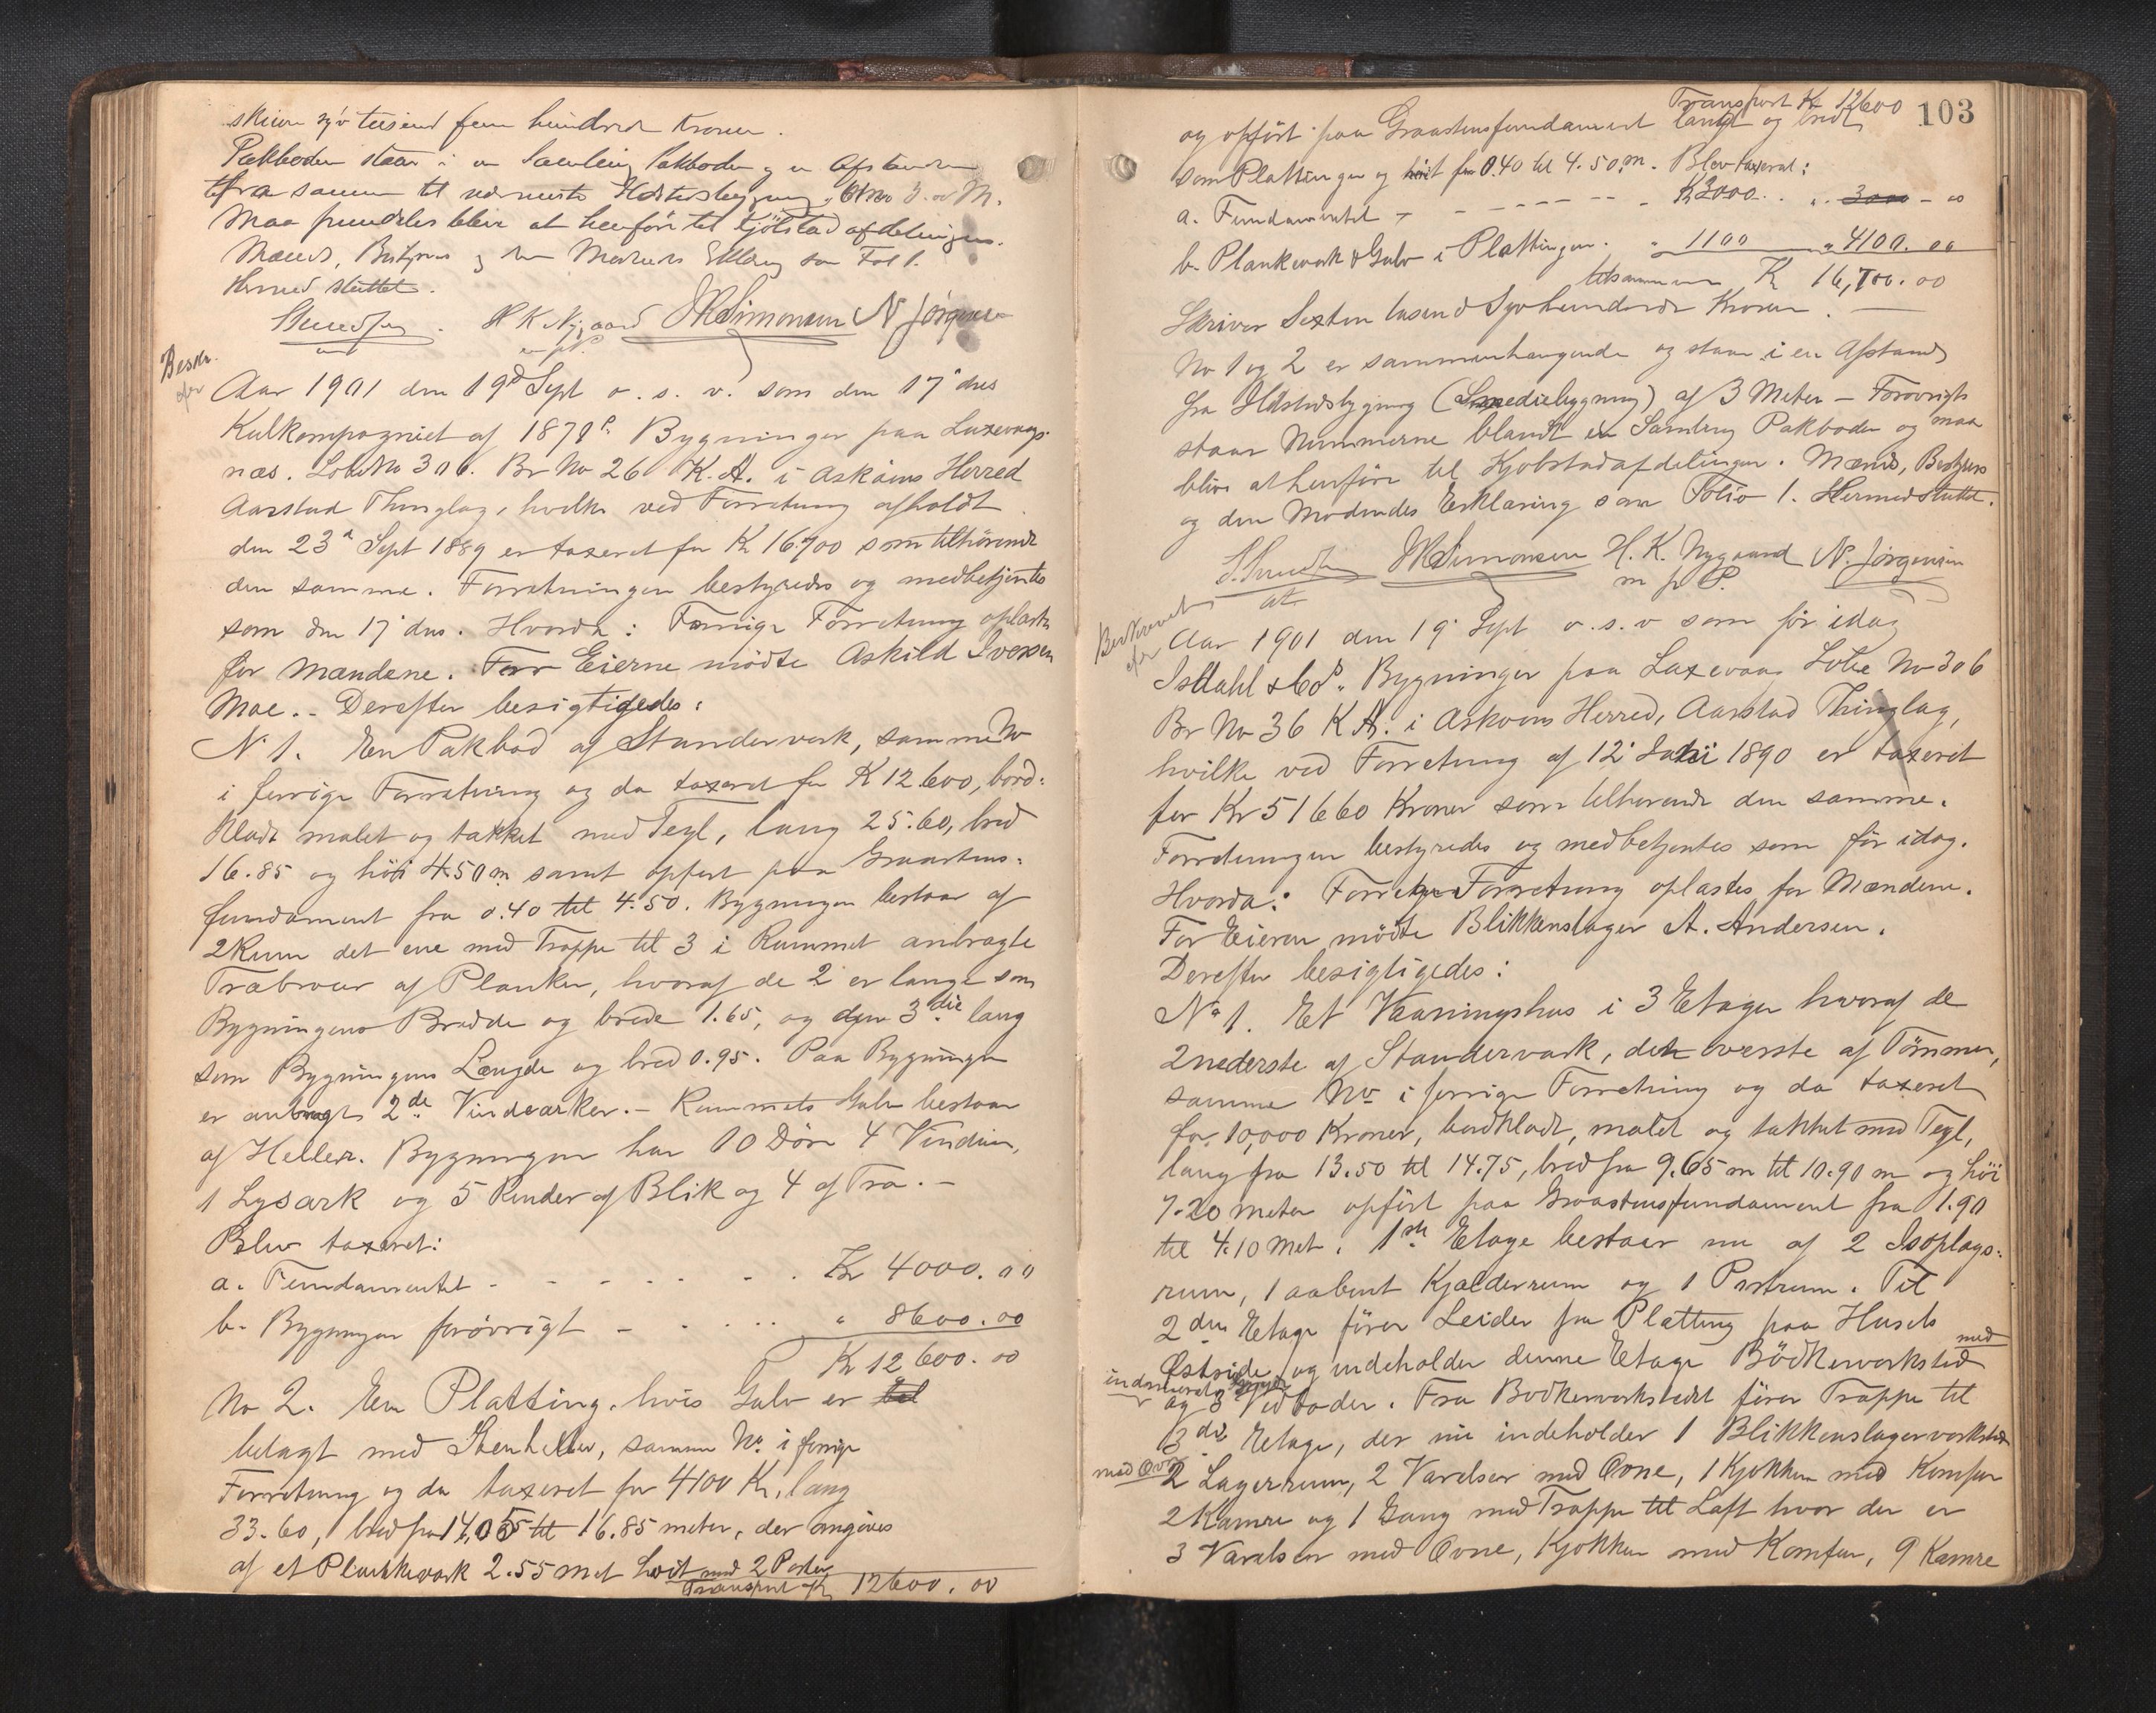 skriver syv tusend fem hundrede Kroner.
Pakboden staar i en Samling Pakboder og en Afstand
fra samme til nærmeste Ildstedsbygning M.
Maa fremdeles blive at henföre til Kjöbstadafdelingen.
Mænds, Bestyrers og den Mödendes Erklæring som Fol 1.
Hermed sluttet.
H K Nygaard JMSimonsen N Jörgensen
m p P.
Beskr.
Aar 1901 den 19d Sept o. s. v. som den 17' dns
Kulkompagniet af 1878s Bygninger paa Laxevaags-
næs. Löbe No 306. Br No 26 K. A. i Asköens Herred
Aarstad Thinglag, hvilke ved Forretning afholdt
den 23d Sept 1889 er taxeret for Kr 16700 som tilhörende
den samme. Forretningen bestyredes og medbetjentes
som den 17' dns. Hvorda: Forrige Forretning oplæstes
for Mændene. For Eierne mödte Askild Iversen
Moe.- Derefter besigtigedes:
No 1. En Pakbod af Standerværk, samme No
i forrige Forretning og da taxeret for K 12600, bord-
klædt malet og tækket med Tegl, lang 25.60, bred
16.85 og höi 4.50 m samt opfört paa Graastens-
fundament fra 0.40 til 4.50. Bygningen bestaar af
2 Rum det ene med Trappe til 3 i Rummet anbragte
Træbroer af Planker, hvoraf de 2 er lange som
Bygningens Bredde og brede 1.65, og den 3die lang
som Bygningens Længde og bred 0.95. Paa Bygningen
er anbragt 2de Vindearker.- Rummets Gulv bestaar
af Heller. Bygningen har 10 Döre 4 Vinduer,
1 Lysark og 5 Render af Blik og 4 af Træ.-
Blev taxeret:
a. Fundamentet - - - - - - . Kr 4000.00
b. Bygningen forövrigt - - . . . . " 8600.00
Kr 12600.00
No 2. En Platting, hvis Gulv er til
belagt med Stenheller, samme No i forrige
Forretning og da taxeret for 4100 Kr, lang
33.60, bred fra 14,05 til 16.85 meter, der omgives
af et Plankeværk 2.55 met höit med 2 Porter
Transport Kr 12600.00
103
Transport Kr 12600
og opfört paa Graastensfundament langt og bredt
som Plattingen og höit fra 0.40 til 4.50 m. Blev taxeret:
a. Fundamentet - - - - - - - K 3000. . " 3000 - 00
b. Plankeværk & Gulv i Plattingen. " 1100 " 4100.00
tilsammen K 16,700.00
Skriver Sexten tusend Syvhundrede Kroner.
No 1 og 2 er sammenhængende og staar i en Afstand
fra Ildstedsbygning (Smediebygning) af 3 Meter - Forövrigt
staar Nummerne blandt en Samling Pakboder og maa
blive at henföre til Kjöbstadafdelingen. Mænds, Bestyrers
og den Mödendes Erklæring som Folio 1. Hermed sluttet.
JMSimonsen H. K. Nygaard N. Jörgensen
m p P.
Beskrevet
Aar 1901 den 19' Sept o.s.v som för idag
Isdahl & Cos. Bygninger paa Laxevaag Löbe No 306
Br No 36 K A. i Askoens Herred, Aarstad Thinglag,
hvilke ved Forretning af 12' Juni 1890 er taxeret
for Kr 51660 Kroner som tilhorende den samme.
Forretningen bestyredes og medbetjentes som för idag.
Hvorda: Forrige Forretning oplæstes for Mændene.
For Eieren mödte Blikkenslager A. Andersen.
Derefter besigtigedes:
No 1. Et Vaaningshus i 3 Etager hvoraf de
2 nederste af Standerværk, den överste af Tömmer,
samme No i forrige Forretning og da taxeret
for 10,000 Kroner, bordklædt, malet og tækket med Tegl,
lang fra 13.50 til 14.75, bred fra 9.65 m til 10.90 m og höi
7.20 meter opfört paa Graastensfundament fra 1.90
til 4.10 Met. 1ste Etage bestaar nu af 2 Isoplags-
rum, 1 aabent Kjælderrum og 1 Pisrum. Til
2den Etage förer Leider fra Platting paa Husets
Östside og indeholder denne Etage Bödkerverksted med
og 3 Vedboder. Fra Bodkerverkstedet förer Trappe til
3die Etage, der nu indeholder 1 Blikkenslagerverksted
med Ovn
2 Lagerrum, 2 Værelser med Ovne, 1 Kjökken med Komfur
2 Kamre og 1 Gang med Trappe til Loft hvor der er
3 Værelser med Ovne, Kjökken med Komfur, 9 Kamre